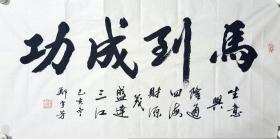 馬到成功
生意興
隆通四海
財源茂
盛達三江
己亥